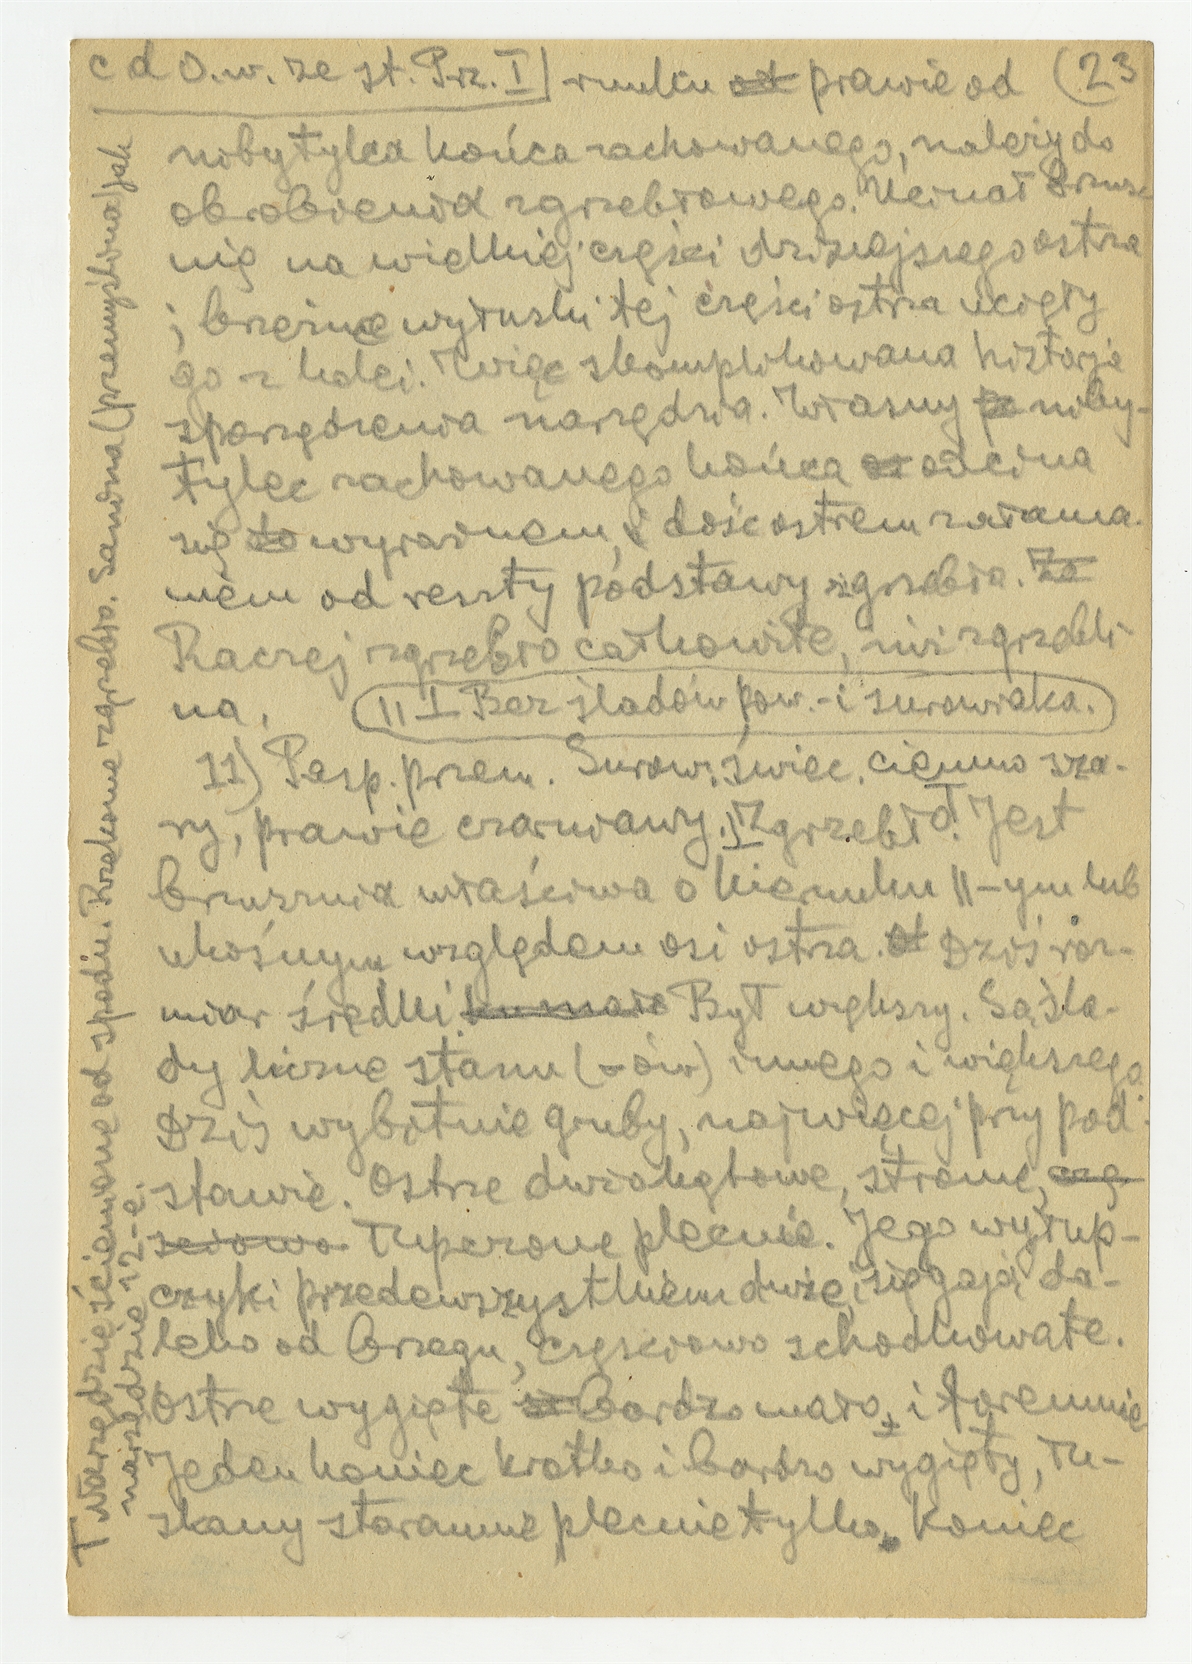 c d O.w. ze st. Prz. I) runku od prawie od (23
nobytylca końca zachowanego, należy do
obrobienia zgrzebłowego. Ucinał brzusz
nię na wielkiej części dzisiejszego ostrza
i brzeżne wyłuski tej części ostrza ucięły
go z kolei. Więc skomplikowana historja
sporządzenia narzędzia. Własny po niby-
tylec zachowanego końca oz odcina
się to wyraźnem, i dość ostrem załama-
niem od reszty podstawy zgrzebła. Za
Raczej zgrzebło całkowite, niż zgrzebli-
na.
II I Bez śladów pow.-i surowiaka.
11) Pasp. przem. Surow. świec. ciemno sza-
ry, prawie czarniawy. I Zgrzebło T. Jest
brzusznia właściwa o kierunku II-ym lub
ukośnym względem osi ostrza. Od Dziś roz-
miar średni. ku mało Był większy. Są śla-
dy liczne stanu (-ów) innego i większego
Dziś wybitnie gruby, najwięcej przy pod-
stawie. Ostrze dwukątowe, strome, czę
ściowo Łuparone plecnie. Jego wyłup-
czyki przedewszystkiem duże, i sięgają da-
leko od brzegu, częściowo schodkowate.
Ostrze wygięte za bardzo mało, i foremnie
Jeden koniec krótko i bardzo wygięty, łu-
skany starannie plecnie tylko. Koniec
T Narzędzie ścieniowane od spodu. Rzekome zgrzebło. Sandrza (przemyślina) jak
narzędzie 12-e.